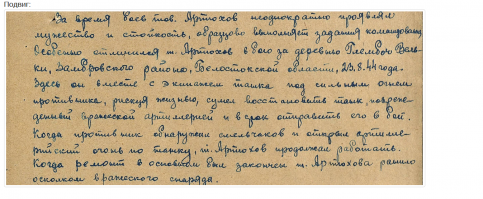 Подвиг:
За время боев тов. Артюхов неоднократно проявлял
мужество и стойкость, образцово выполняет задания командован.
Особенно отличился т. Артюхов в бою за деревню Глембоч Вель-
ки, Замбровского района, Белостокской области, 23.8.44 года.
Здесь он вместе с экипажем танка под сильным огнем
противника, рискуя жизнью, сумел восстановить танк, повреж-
денный вражеской артиллерией и в срок отправить его в бой.
Когда противник обнаружил смельчаков и открыл артилле-
рийский огонь по танку, т. Артюхов продолжал работать.
Когда ремонт в основном был закончен т. Артюхова ранило
осколком вражеского снаряда.